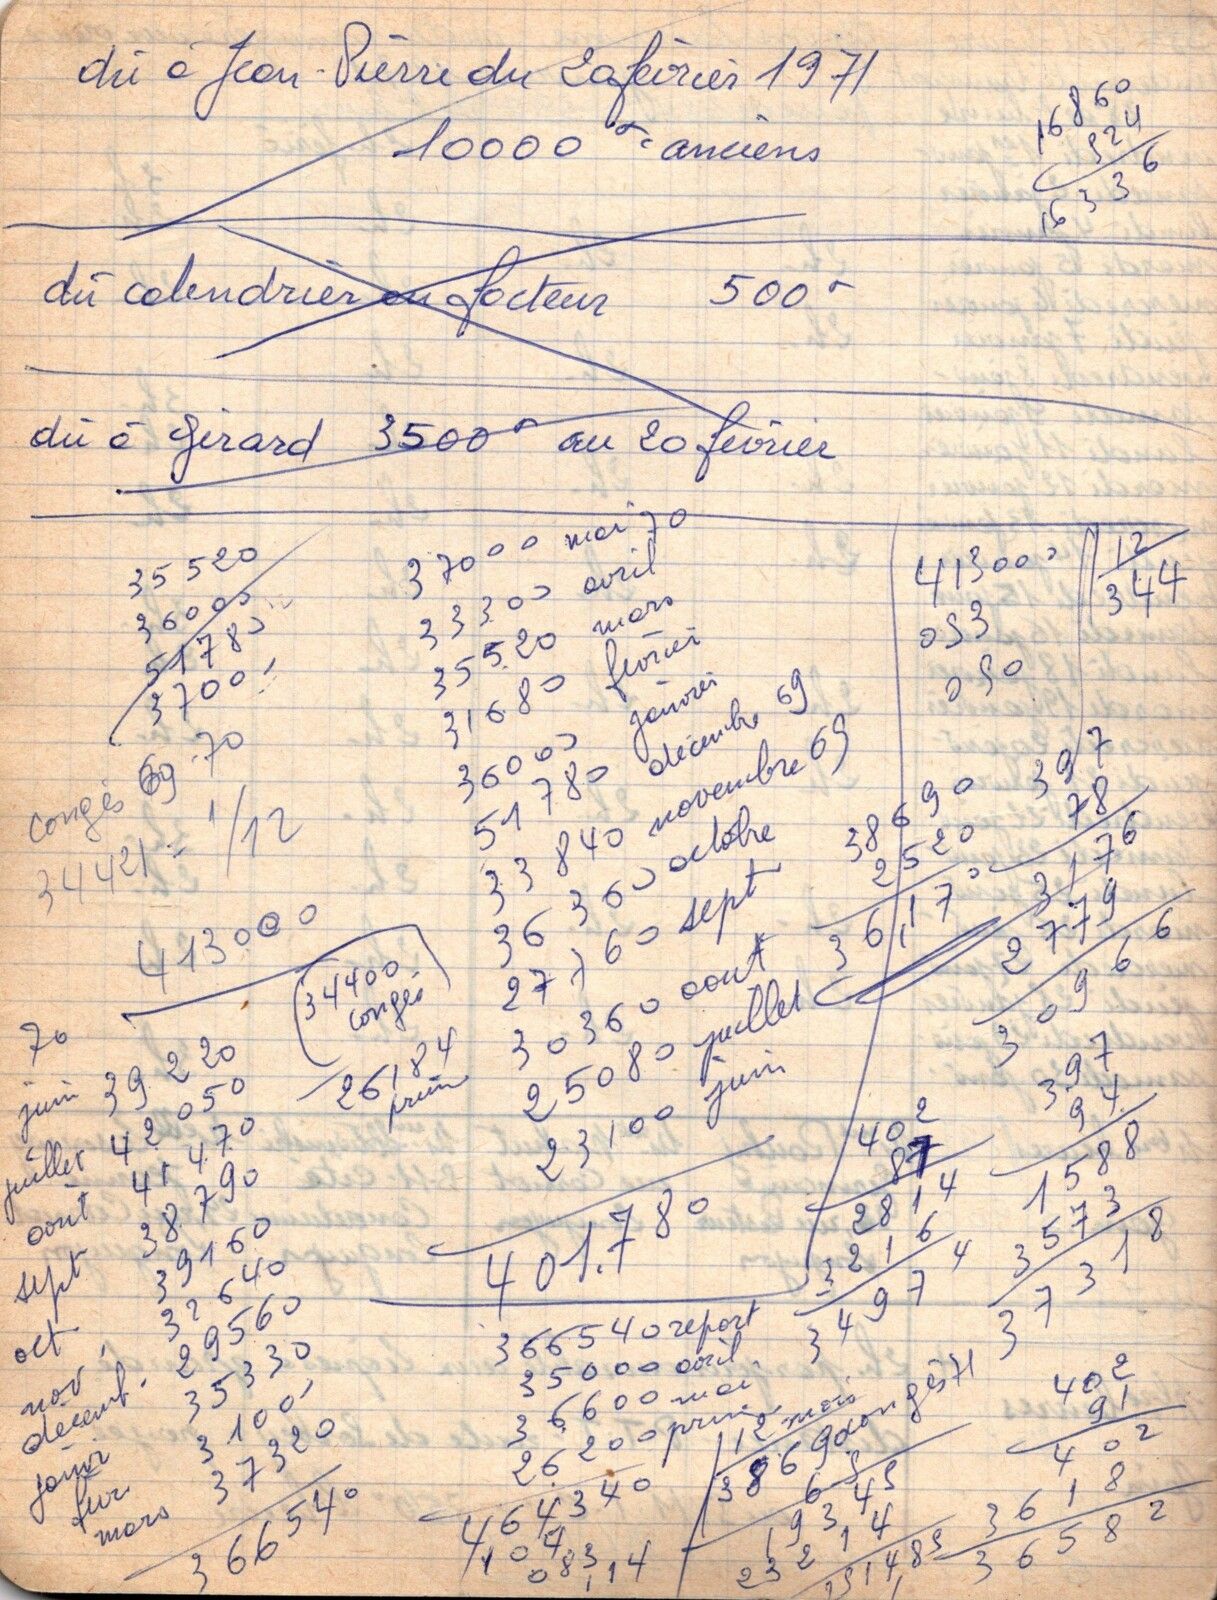 dû à Jean-Pierre du 20 février 1971
10000 anciens
16860
324
16336
dû calendrier au facteur 500
dû à Gérard 3500 au 20 février
35520
36000
51780
37000
congés 69 70
34421 = 1/12
413000
34400
congés
26184
prime
37000 mai 70
33300 avril
35520 mars
31680 février
36000 janvier
51780 décembre 69
33840 novembre 69
36360 octobre
27760 sept
30360 aout
25080 juillet
23100 juin
401.780
413000 12
053 344
050
38690
2520
36170
397
78
3176
2779
30966
397
94
1588
3573
37318
402
87
2814
3216
34974
70
juin 39220
juillet 42050
août 41470
sept 38790
oct 39160
nov. 32640
décemb. 29560
janvi 35330
fév. 3100
mars 37320
366540
366540 report
35000 avril
36600 mai
26200 prime
464340
104
083
114
12 mois
38690 congés 71
1934
23214
402
91
402
3618
36582